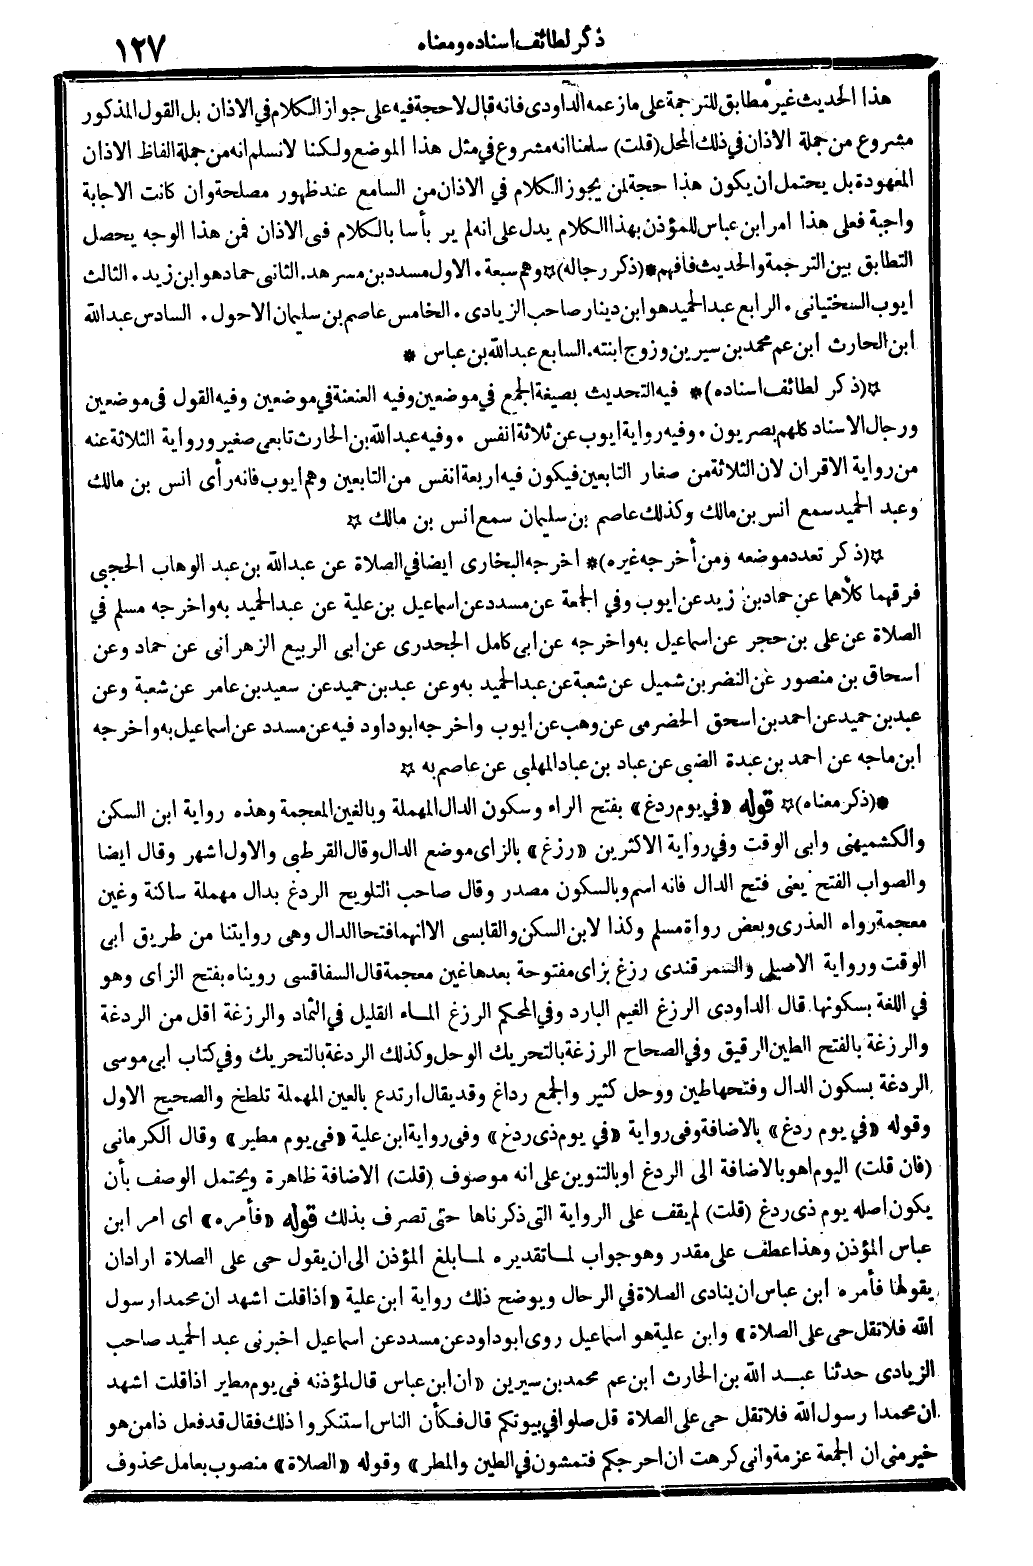 ذكر لطائف اسناده ومعناه
١٢٧
هذا الحديث غير مطابق للترجمة على ما زعمه الداودى فانه قال لا حجة فيه على جواز الكلام في الاذان بل القول المذكور
مشروع من جملة الاذان في ذلك المحل (قلت) سلمنا انه مشروع في مثل هذا الموضع ولكنا لا نسلم انه من جملة الفاظ الاذان
المعهودة بل يحتمل ان يكون هذا حجة لمن يجوز الكلام في الاذان من السامع عند ظهور مصلحة وان كانت الاجابة
واجبة فعلى هذا امر ابن عباس للمؤذن بهذا الكلام يدل على انه لم ير بأسا بالكلام فى الاذان فمن هذا الوجه يحصل
التطابق بين الترجمة والحديث فافهم * (ذكر رجاله) ☆ وهم سبعة . الاول مسدد بن مسرهد . الثانى حماد هو ابن زيد . الثالث
ايوب السختيانى . الرابع عبد الحميد هو ابن دينار صاحب الزيادى . الخامس عاصم بن سليمان الاحول . السادس عبد الله
ابن الحارث ابن عم محمد بن سيرين وزوج ابنته . السابع عبد الله بن عباس *
☆ (ذكر لطائف اسناده) * فيه التحديث بصيغة الجمع في موضعين وفيه العنعنة في موضعين وفيه القول فى موضعين
ورجال الاسناد كلهم بصريون . وفيه رواية ايوب عن ثلاثة انفس . وفيه عبد الله بن الحارث تابعى صغير ورواية الثلاثة عنه
من رواية الاقران لان الثلاثة من صغار التابعين فيكون فيه اربعة انفس من التابعين وهم ايوب فانه رأى انس بن مالك
وعبد الحميد سمع انس بن مالك وكذلك عاصم بن سليمان سمع انس بن مالك ☆
☆ (ذكر تعدد موضعه ومن أخرجه غيره) * اخرجه البخارى ايضا في الصلاة عن عبد الله بن عبد الوهاب الحجبى
فرقهما كلاهما عن حماد بن زيد عن ايوب وفي الجمعة عن مسدد عن اسماعيل بن علية عن عبد الحميد به واخرجه مسلم في
الصلاة عن على بن حجر عن اسماعيل به واخرجه عن ابى كامل الجحدرى عن ابى الربيع الزهرانى عن حماد وعن
اسحاق بن منصور عن النضر بن شميل عن شعبة عن عبد الحميد به وعن عبد بن حميد عن سعيد بن عامر عن شعبة وعن
عبد بن حميد عن احمد بن اسحق الحضرمى عن وهب عن ايوب واخرجه ابو داود فيه عن مسدد عن اسماعيل به واخرجه
ابن ماجه عن احمد بن عبدة الضبى عن عباد بن عباد المهلبى عن عاصم به ☆
* (ذكر معناه) ☆ قوله «في يوم ردغ» بفتح الراء وسكون الدال المهملة وبالغين المعجمة وهذه رواية ابن السكن
والكشميهنى وابى الوقت وفي رواية الاكثرين «رزغ» بالزاى موضع الدال وقال القرطبى والاول اشهر وقال ايضا
والصواب الفتح يعنى فتح الدال فانه اسم وبالسكون مصدر وقال صاحب التلويح الردغ بدال مهملة ساكنة وغين
معجمة رواه العذرى وبعض رواة مسلم وكذا لابن السكن والقابسى الا انهما فتحا الدال وهى روايتنا من طريق ابى
الوقت ورواية الاصيلى والسمرقندى رزغ بزاى مفتوحة بعدها غين معجمة قال السفاقسى رويناه بفتح الزاى وهو
في اللغة بسكونها قال الداودى الرزغ الغيم البارد وفي المحكم الرزغ الماء القليل في الثماد والرزغة اقل من الردغة
والرزغة بالفتح الطين الرقيق وفي الصحاح الرزغة بالتحريك الوحل وكذلك الردغة بالتحريك وفي كتاب ابى موسى
الردغة بسكون الدال وفتحها طين ووحل كثير والجمع رداغ وقد يقال ارتدع بالعين المهملة تلطخ والصحيح الاول
وقوله «في يوم ردغ» بالاضافة وفى رواية «في يوم ذى ردغ» وفى رواية ابن علية «فى يوم مطير» وقال الكرمانى
(فان قلت) اليوم اهو بالاضافة الى الردغ او بالتنوين على انه موصوف (قلت) الاضافة ظاهرة ويحتمل الوصف بأن
يكون اصله يوم ذى ردغ (قلت) لم يقف على الرواية التى ذكرناها حتى تصرف بذلك قوله «فأمره» اى امر ابن
عباس المؤذن وهذا عطف على مقدر وهو جواب لما تقديره لما بلغ المؤذن الى ان يقول حى على الصلاة اراد ان
يقولها فأمره ابن عباس ان ينادى الصلاة في الرحال ويوضح ذلك رواية ابن علية «اذا قلت اشهد ان محمدا رسول
الله فلا تقل حى على الصلاة» وابن علية هو اسماعيل روى ابو داود عن مسدد عن اسماعيل اخبرنى عبد الحميد صاحب
الزيادى حدثنا عبد الله بن الحارث ابن عم محمد بن سيرين «ان ابن عباس قال لمؤذنه فى يوم مطير اذا قلت اشهد
ان محمدا رسول الله فلا تقل حى على الصلاة قل صلوا في بيوتكم قال فكأن الناس استنكروا ذلك فقال قد فعل ذا من هو
خير منى ان الجمعة عزمة وانى كرهت ان احرجكم فتمشون في الطين والمطر» وقوله «الصلاة» منصوب بعامل محذوف